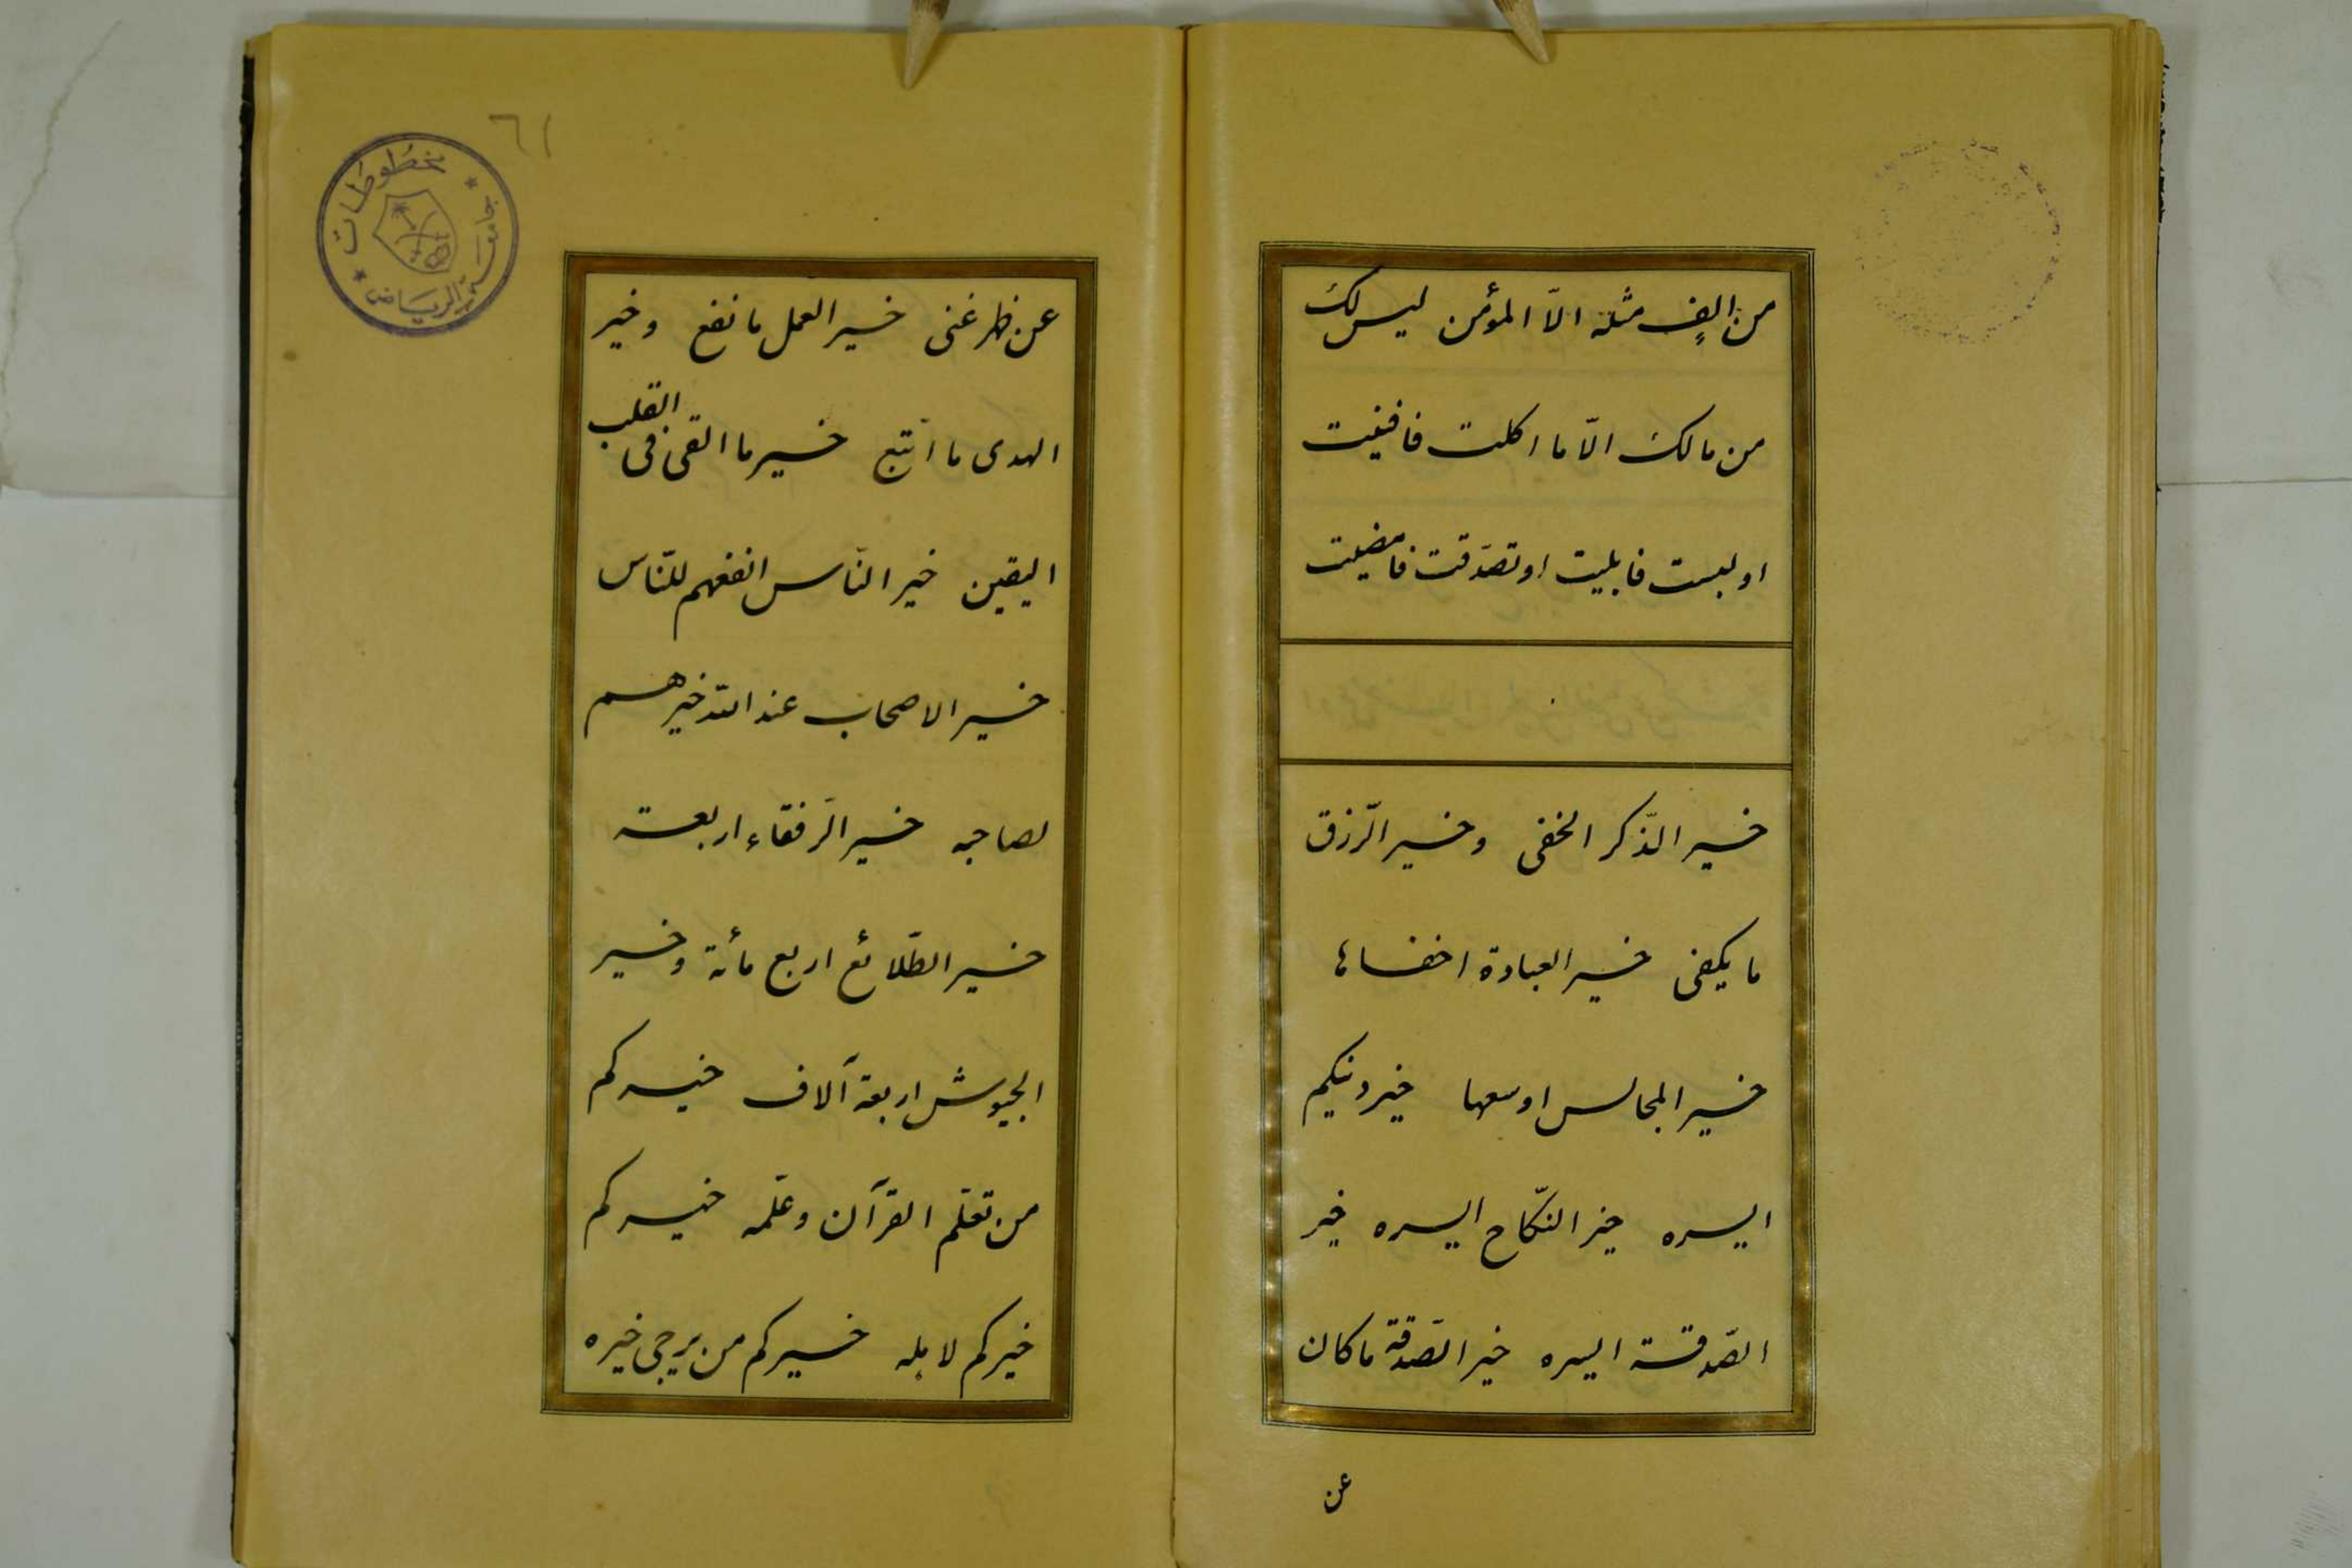 من الفٍ مثله الّا المؤمن ليس لك
من مالك الّا ما اكلت فافنيت
او لبست فابليت او تصدّقت فامضيت
خير الذّكر الخفى وخير الرّزق
ما يكفى خير العبادة اخفاها
خير المجالس اوسعها خير دينكم
ايسره خير النّكاح ايسره خير
الصّدقة ايسره خير الصّدقة ما كان
عن
٦١
مخطوطات
جامعة الرياض
عن ظهر غنى خير العمل ما نفع وخير
الهدى ما اتّبع خير ما القى فى القلب
اليقين خير النّاس انفعهم للنّاس
خير الاصحاب عند الله خيرهم
لصاحبه خير الرّفقاء اربعة
خير الطّلائع اربع مأئة وخير
الجيوش اربعة آلاف خيركم
من تعلّم القرآن وعلّمه خيركم
خيركم لاهله خيركم من يرجى خيره